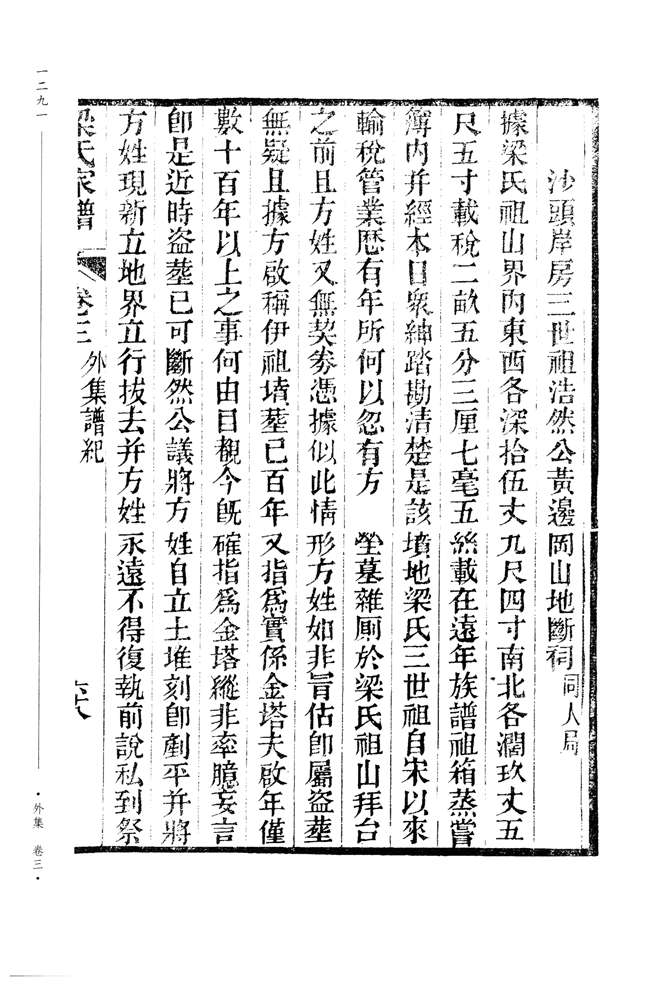 沙頭岸房三世祖浩然公黃邊岡山地斷祠同人局
據梁氏祖山界內東西各深拾伍丈九尺四寸南北各濶玖丈五
尺五寸載稅二畝五分三厘七毫五絲載在遠年族譜祖箱蒸嘗
簿內并經本日衆紳踏勘清楚是該墳地梁氏三世祖自宋以來
輸稅管業歷有年所何以忽有方 塋墓雜厠於梁氏祖山拜台
之前且方姓又無契劵憑據似此情形方姓如非冒佔卽屬盜塟
無疑且據方啟稱伊祖墳塟已百年又指爲實係金塔夫啟年僅
數十百年以上之事何由目覩今旣確指爲金塔縱非率臆妄言
卽是近時盜塟已可斷然公議將方姓自立土堆刻卽剷平并將
方姓現新立地界立行拔去并方姓永遠不得復執前說私到祭
梁氏家譜 卷三 外集譜紀 六十八
一二九一
·外集 卷三·